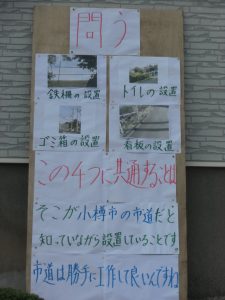 問う
鉄柵の設置
トイレの設置
ゴミ箱の設置
看板の設置
この4つに共通することは
そこが小樽市の市道だと
知っていながら設置していることです
市道は勝手に工作して良いんですね